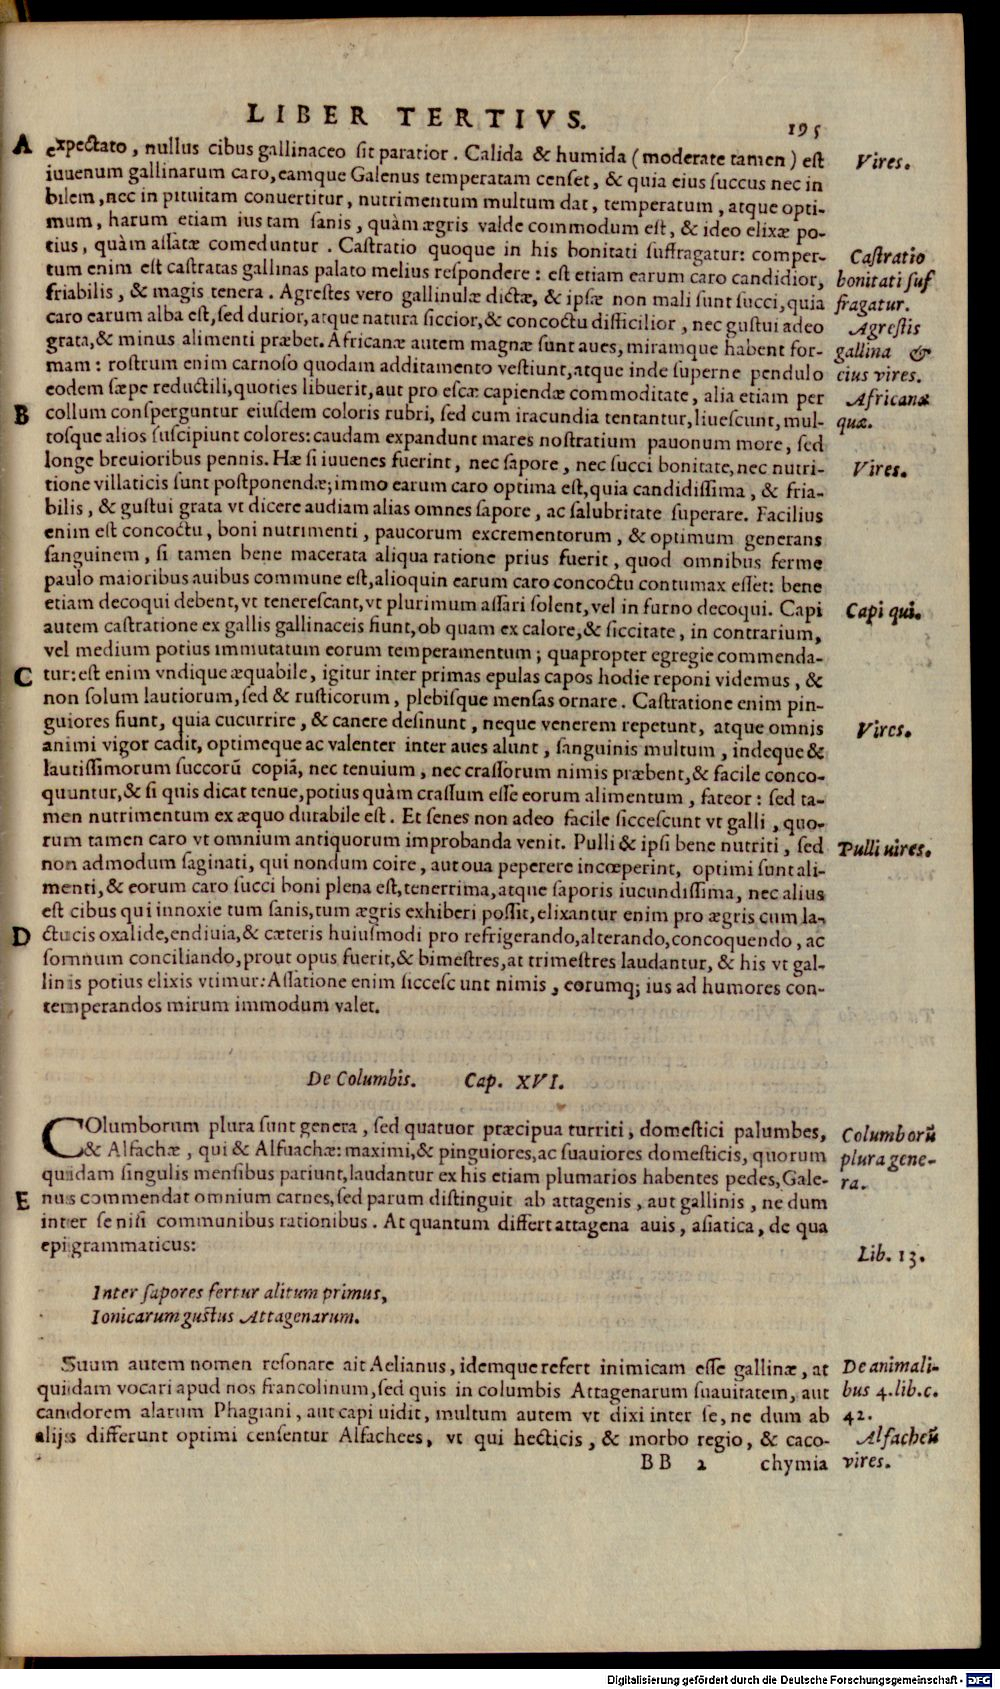 LIBER TERTIVS.
195
A expectato, nullus cibus gallinaceo sit paratior. Calida & humida (moderate tamen) est
Vires.
iuuenum gallinarum caro, eamque Galenus temperatam censet, & quia eius succus nec in
bilem, nec in pituitam conuertitur, nutrimentum multum dat, temperatum, atque opti-
mum, harum etiam ius tam sanis, quàm ægris valde commodum est, & ideo elixæ po-
tius, quàm assatæ comeduntur. Castratio quoque in his bonitati suffragatur: comper-
Castratio
tum enim est castratas gallinas palato melius respondere: est etiam earum caro candidior,
bonitati suf
friabilis, & magis tenera. Agrestes vero gallinulæ dictæ, & ipsæ non mali sunt succi, quia
fragatur.
caro earum alba est, sed durior, atque natura siccior, & concoctu difficilior, nec gustui adeo
Agrestis
grata, & minus alimenti præbet. Africanæ autem magnæ sunt aues, miramque habent for-
gallina &
mam: rostrum enim carnoso quodam additamento vestiunt, atque inde superne pendulo
eius vires.
eodem sæpe reductili, quoties libuerit, aut pro escæ capiendæ commoditate, alia etiam per
Africanæ
B collum consperguntur eiusdem coloris rubri, sed cum iracundia tentantur, liuescunt, mul-
quæ.
tosque alios suscipiunt colores: caudam expandunt mares nostratium pauonum more, sed
longe breuioribus pennis. Hæ si iuuenes fuerint, nec sapore, nec succi bonitate, nec nutri-
Vires.
tione villaticis sunt postponendæ; immo earum caro optima est, quia candidissima, & fria-
bilis, & gustui grata vt dicere audiam alias omnes sapore, ac salubritate superare. Facilius
enim est concoctu, boni nutrimenti, paucorum excrementorum, & optimum generans
sanguinem, si tamen bene macerata aliqua ratione prius fuerit, quod omnibus ferme
paulo maioribus auibus commune est, alioquin earum caro concoctu contumax esset: bene
etiam decoqui debent, vt tenerescant, vt plurimum assari solent, vel in furno decoqui. Capi
Capi qui.
autem castratione ex gallis gallinaceis fiunt, ob quam ex calore, & siccitate, in contrarium,
vel medium potius immutatum eorum temperamentum; quapropter egregie commenda-
C tur: est enim vndique æquabile, igitur inter primas epulas capos hodie reponi videmus, &
non solum lautiorum, sed & rusticorum, plebisque mensas ornare. Castratione enim pin-
guiores fiunt, quia cucurrire, & canere desinunt, neque venerem repetunt, atque omnis
Vires.
animi vigor cadit, optimeque ac valenter inter aues alunt, sanguinis multum, indeque &
lautissimorum succorũ copiã, nec tenuium, nec crassorum nimis præbent, & facile conco-
quuntur, & si quis dicat tenue, potius quàm crassum esse eorum alimentum, fateor: sed ta-
men nutrimentum ex æquo durabile est. Et senes non adeo facile siccescunt vt galli, quo-
rum tamen caro vt omnium antiquorum improbanda venit. Pulli & ipsi bene nutriti, sed
Pulli uires.
non admodum saginati, qui nondum coire, aut oua peperere incœperint, optimi sunt ali-
menti, & eorum caro succi boni plena est, tenerrima, atque saporis iucundissima, nec alius
est cibus qui innoxie tum sanis, tum ægris exhiberi possit, elixantur enim pro ægris cum la-
D ctucis oxalide, endiuia, & cæteris huiusmodi pro refrigerando, alterando, concoquendo, ac
somnum conciliando, prout opus fuerit, & bimestres, at trimestres laudantur, & his vt gal-
linis potius elixis vtimur: Assatione enim siccescunt nimis, eorumq; ius ad humores con-
temperandos mirum immodum valet.
De Columbis. Cap. XVI.
COlumborum plura sunt genera, sed quatuor præcipua turriti, domestici palumbes,
Columborũ
& Alfachæ, qui & Alfuachæ: maximi, & pinguiores, ac suauiores domesticis, quorum
plura gene-
quidam singulis mensibus pariunt, laudantur ex his etiam plumarios habentes pedes, Gale-
ra.
E nus commendat omnium carnes, sed parum distinguit ab attagenis, aut gallinis, ne dum
inter se nisi communibus rationibus. At quantum differt attagena auis, asiatica, de qua
epigrammaticus:
Lib. 13.
Inter sapores fertur alitum primus,
Ionicarum gustus Attagenarum.
Suum autem nomen resonare ait Aelianus, idemque refert inimicam esse gallinæ, at
De animali-
quidam vocari apud nos francolinum, sed quis in columbis Attagenarum suauitatem, aut
bus 4. lib. c.
candorem alarum Phagiani, aut capi uidit, multum autem vt dixi inter se, ne dum ab
42.
alijs differunt optimi censentur Alfachees, vt qui hecticis, & morbo regio, & caco-
Alfacheũ
BB 2 chymia
vires.
Digitalisierung gefördert durch die Deutsche Forschungsgemeinschaft - DFG